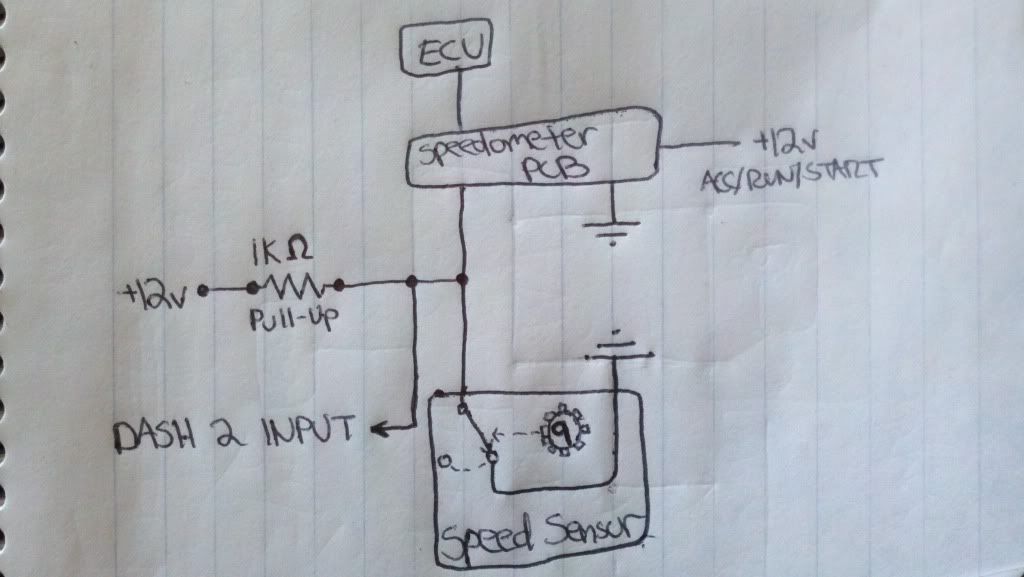 ECU
Speedometer
PCB
+12v
ACC/RUN/START
1KΩ
+12v
Pull-up
DASH 2 INPUT
9
Speed Sensor